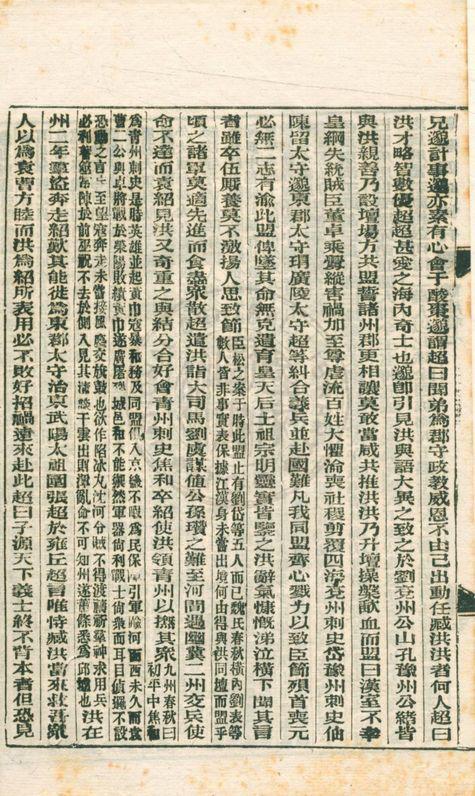 兄邈計事邈亦素有心會于酸棗邈謂超曰聞弟爲郡守政教威恩不由己出動任臧洪洪者何人超曰
洪才略智數優超超甚愛之海內奇士也邈卽引見洪與語大異之致之於劉兗州公山孔豫州公緒皆
與洪親善乃設壇場方共盟誓諸州郡更相讓莫敢當咸共推洪洪乃升壇操槃歃血而盟曰漢室不幸
皇綱失統賊臣董卓乘釁縱害禍加至尊虐流百姓大懼淪喪社稷剪覆四海兗州刺史岱豫州刺史伷
陳留太守邈東郡太守瑁廣陵太守超等糾合義兵並赴國難凡我同盟齊心戮力以致臣節殞首喪元
必無二志有渝此盟俾墜其命無克遺育皇天后土祖宗明靈實皆鑒之洪辭氣慷慨涕泣橫下聞其言
者雖卒伍厮養莫不激揚人思致節
臣松之案于時此盟止有劉岱等五人而已魏氏春秋橫內劉表等
數人皆非事實表保據江漢身未嘗出境何由得與洪同壇而盟乎
頃之諸軍莫適先進而食盡衆散超遣洪詣大司馬劉虞謀値公孫瓚之難至河間遇幽冀二州交兵使
命不達而袁紹見洪又奇重之與結分合好會青州刺史焦和卒紹使洪領青州以撫其衆
九州春秋曰
初平中焦和
爲青州刺史是時英雄並起黃巾寇暴和務及同盟俱入京畿不暇爲民保障引軍踰河而西未久而袁
曹二公與卓將戰於滎陽敗績黃巾遂廣屠裂城邑和不能禦然軍器尚利戰士尚衆而耳目偵邏不設
恐動之言妄至望寇奔走未嘗接風塵交旗鼓也欲作陷冰丸沈河令賊不得渡禱祈羣神求用兵
必利蓍筮常陳於前巫祝不去於側入見其清談干雲出則渾亂命不可知州遂蕭條悉爲丘墟也
洪在
州二年羣盜奔走紹歎其能徙爲東郡太守治東武陽太祖圍張超於雍丘超言唯恃臧洪當來救吾衆
人以爲袁曹方睦而洪爲紹所表用必不敗好招禍遠來赴此超曰子源天下義士終不背本者但恐見